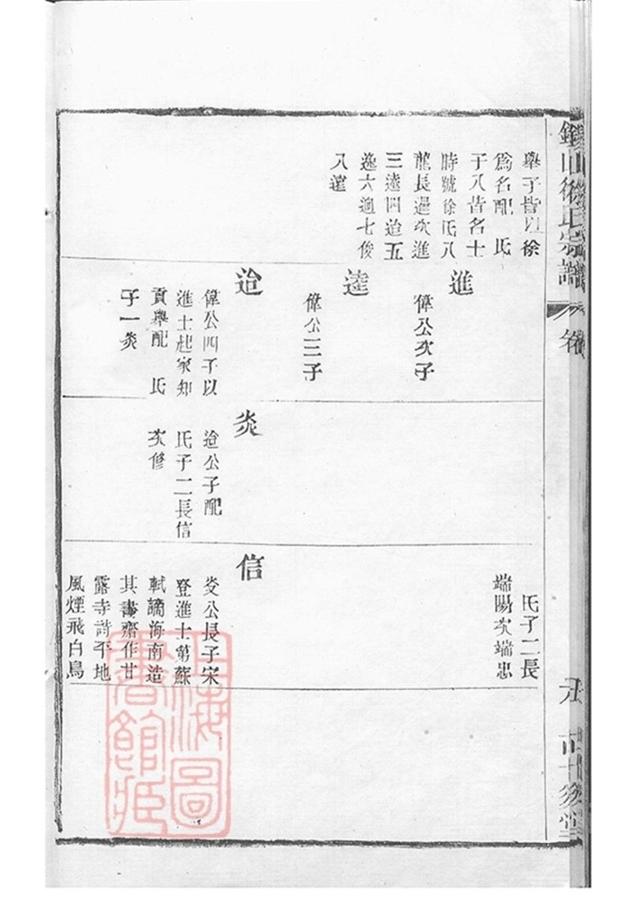 山徐氏宗譜
卷
舉子皆以徐
爲名配 氏
子八皆名士
時號徐氏八
龍長邁次進
三逵四迨五
逸六遹七俊
八
進
偉公次子
逵
偉公三子
迨
偉公四子以
進士起家知
貢舉配 氏
子一炎
炎
迨公子配
氏子二長信
次修
氏子二長
端陽次端忠
信
炎公長子宋
登進士第蘇
軾謫海南造
其書齋作甘
露寺詩平地
風煙飛白鳥
上海圖
書館藏